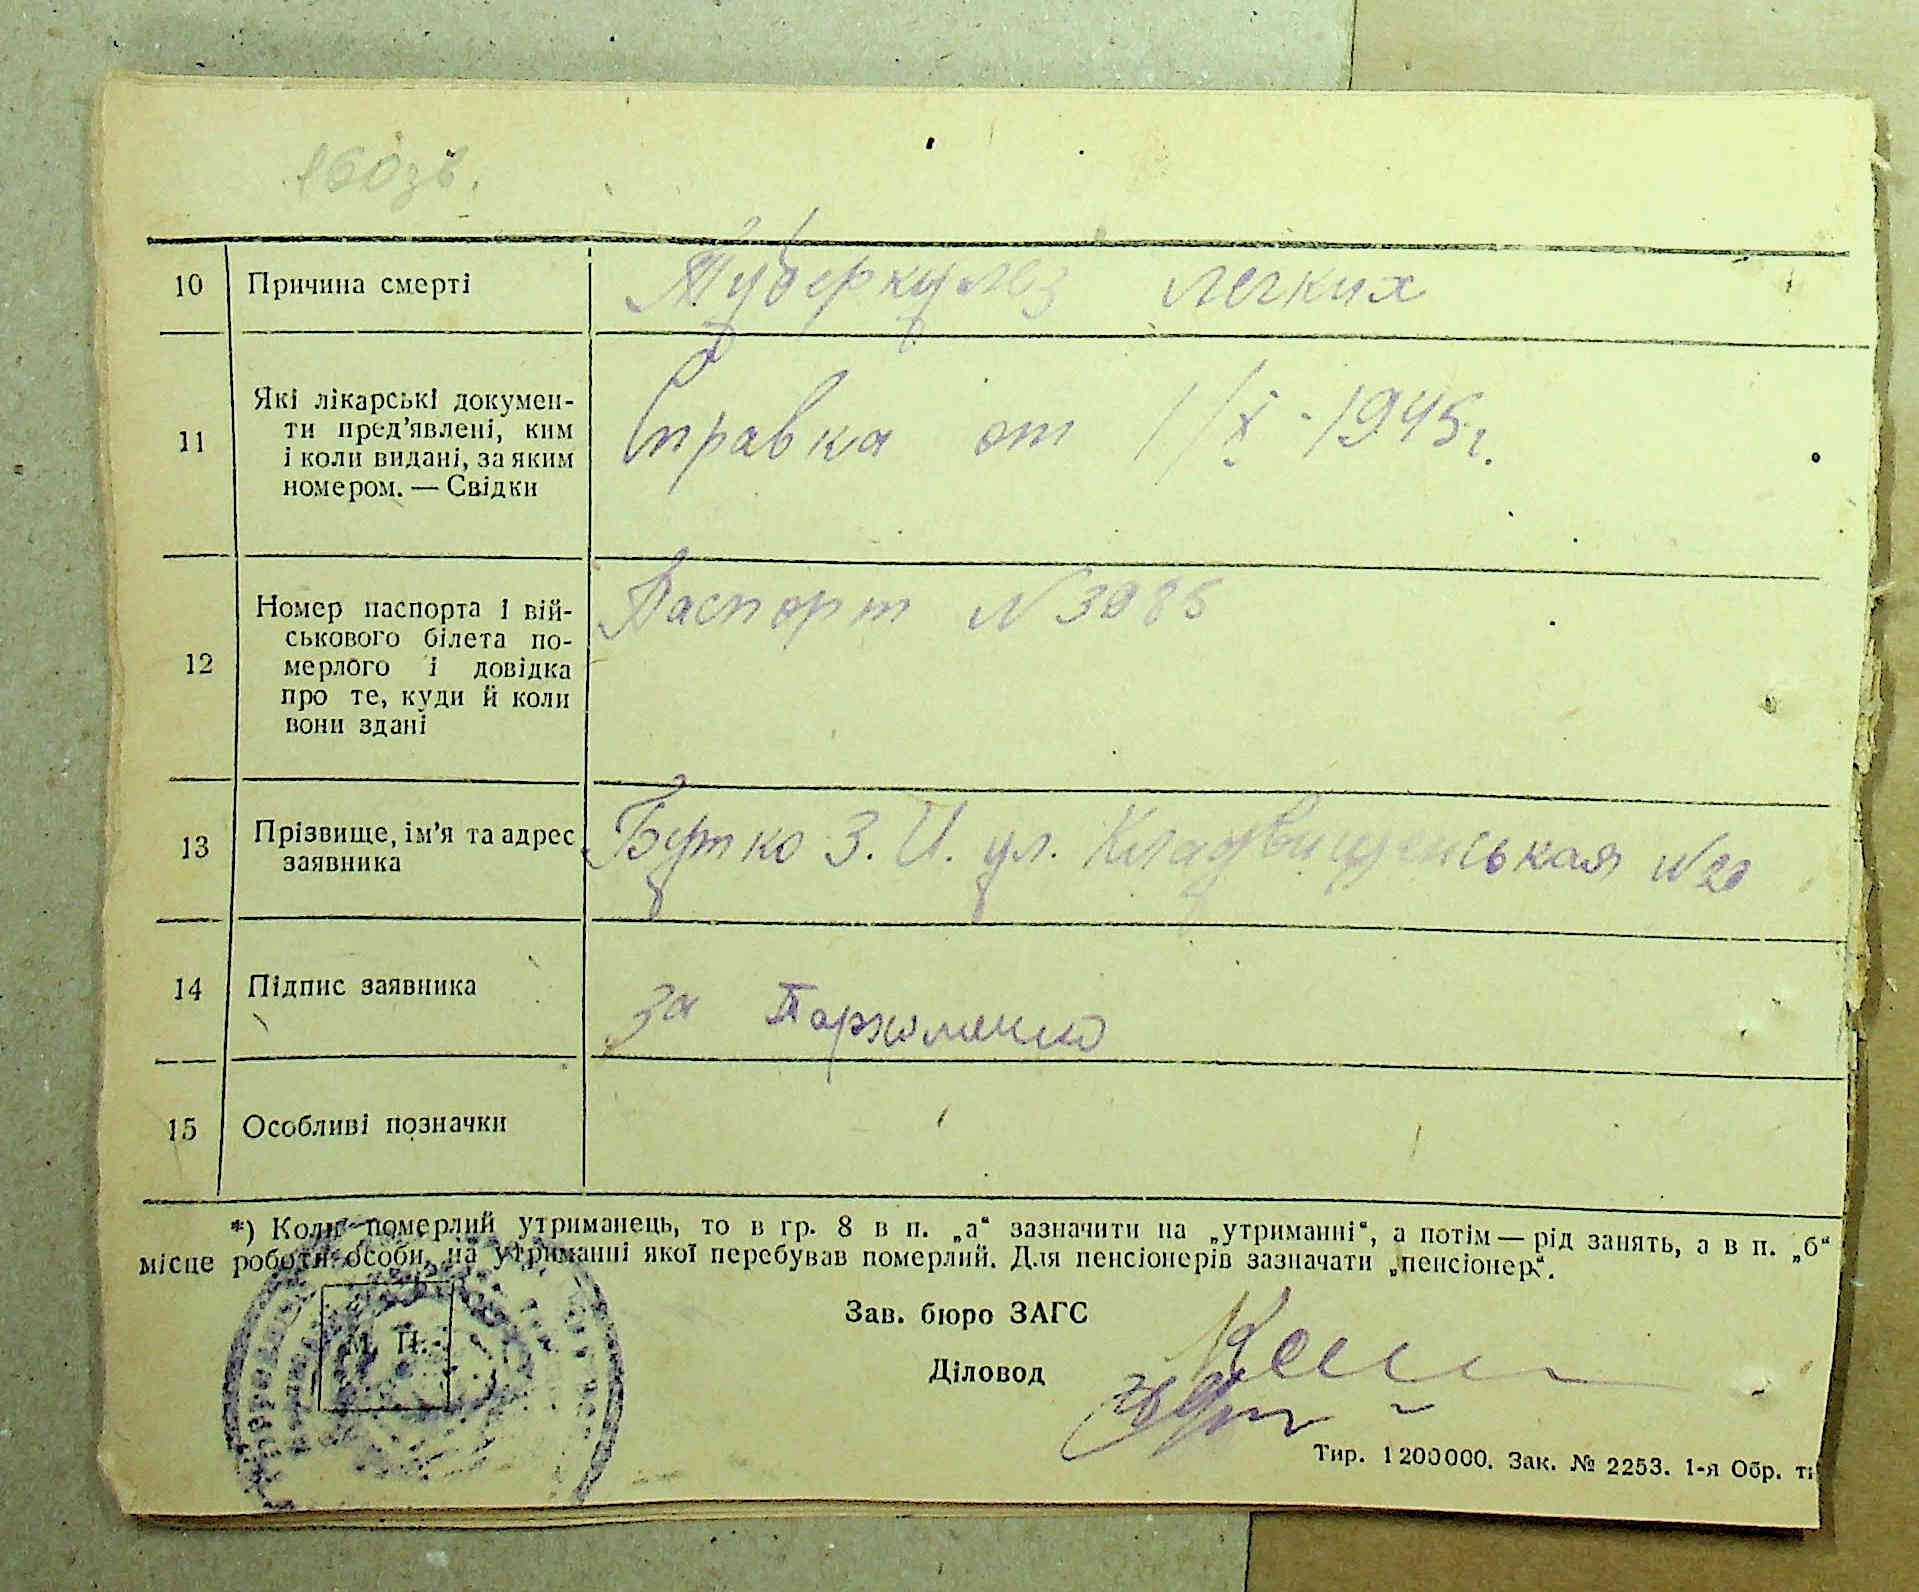 160зв.
10 Причина смерті Туберкулез легких
11 Які лікарські докумен-
ти пред’явлені, ким
і коли видані, за яким
номером. — Свідки
Справка от 1/X - 1945 г.
12 Номер паспорта і вій-
ськового білета по-
мерлого і довідка
про те, куди й коли
вони здані
Паспорт N 3085
13 Прізвище, ім’я та адрес
заявника
Бутко З. И. ул. N 20
14 Підпис заявника за Пархоменко
15 Особливі позначки
*) Коли померлий утриманець, то в гр. 8 в п. „а“ зазначити на „утриманні“, а потім — рід занять, а в п. „б“
місце роботи особи, на утриманні якої перебував померлий. Для пенсіонерів зазначати „пенсіонер“.
М. П.
Зав. бюро ЗАГС
Діловод
Тир. 1200000. Зак. № 2253. 1-я Обр. ти